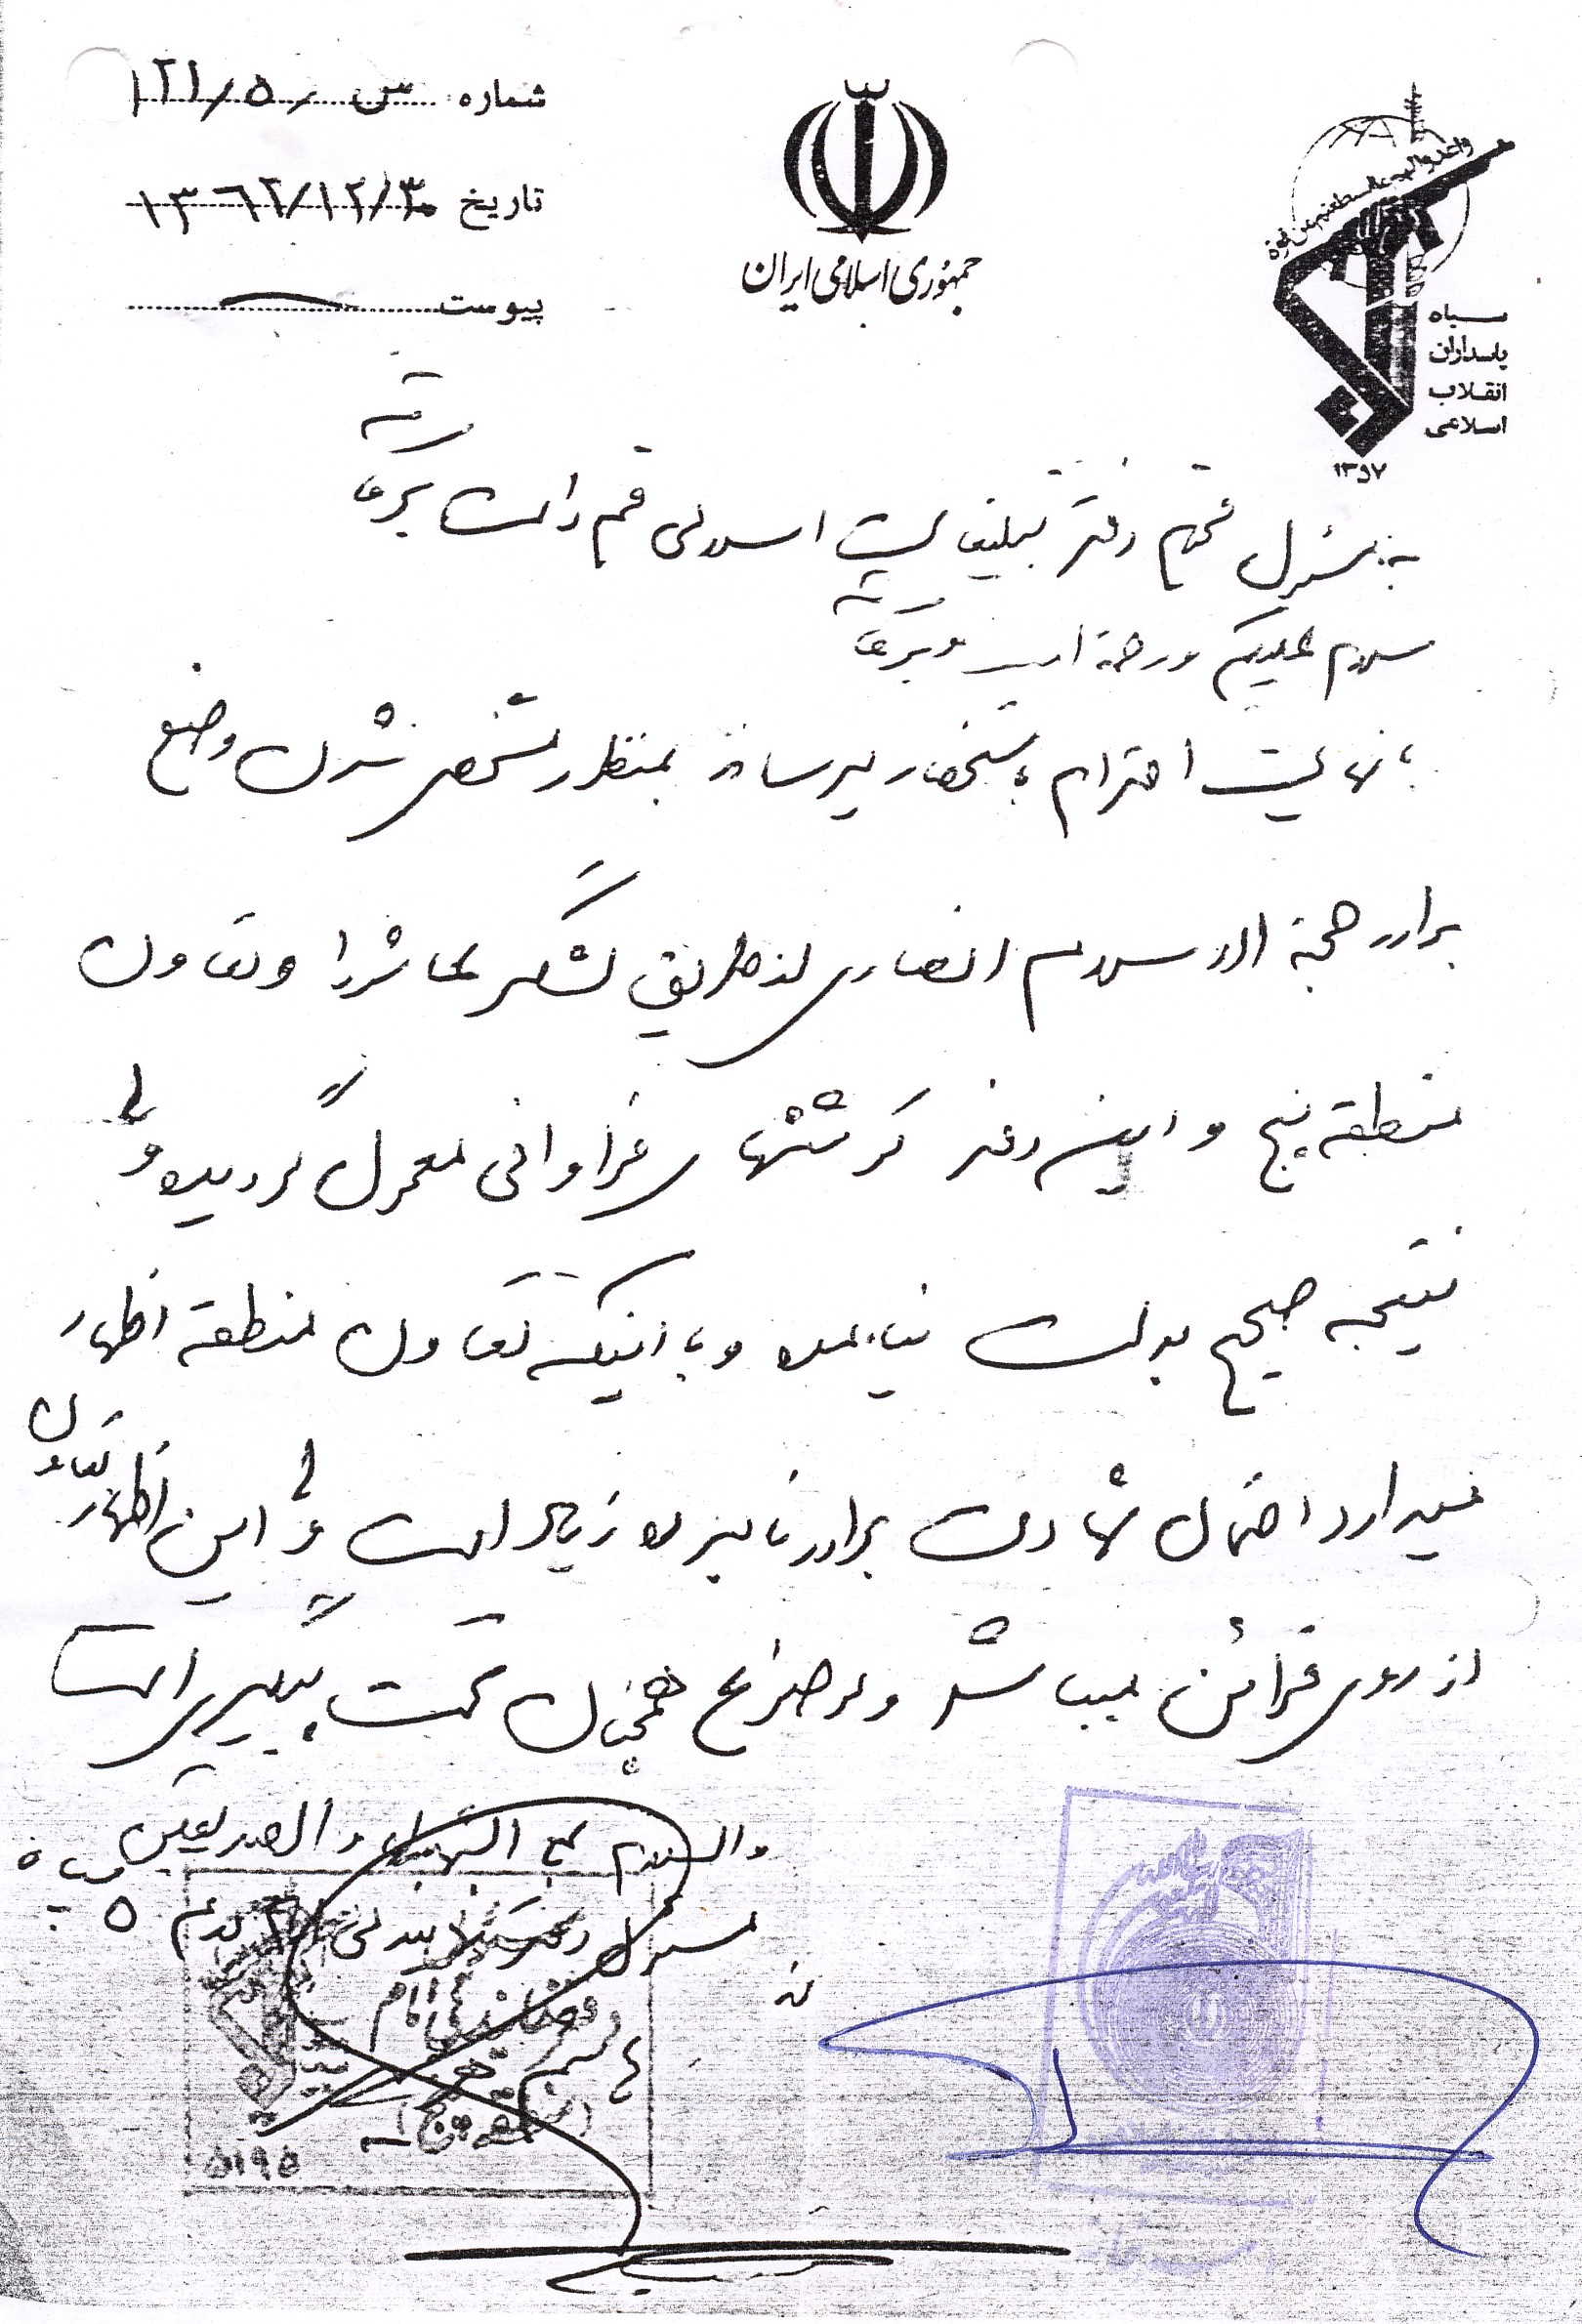 شماره س/۵/۱۲۱
تاریخ ۱۳۶۲/۱۲/۳۰
پیوست
جمهوری اسلامی ایران
سپاه
پاسداران
انقلاب
اسلامی
۱۳۵۷
به: مسئول محترم دفتر تبلیغات اسلامی قم دامت برکاته
سلام علیکم و رحمة الله و برکاته
با نهایت احترام باستحضار میرساند بمنظور مشخص شدن وضع
برادر حجة الاسلام انصاری از طریق لشگر عاشورا و تعاون
منطقه پنج و این دفتر کوششهای فراوانی معمول گردیده ولی
نتیجه صحیح بدست نیامده و با اینکه تعاون منطقه اظهار
میدارد احتمال شهادت برادر نامبرده زیاد است ولی این اظهار تعاون
از روی قرائن میباشد و موضوع همچنان تحت پیگیری است
والسلام علی الشهداء و الصدیقین
مسئول دفتر نمایندگی امام سپاه ۵
۵۱۹۵